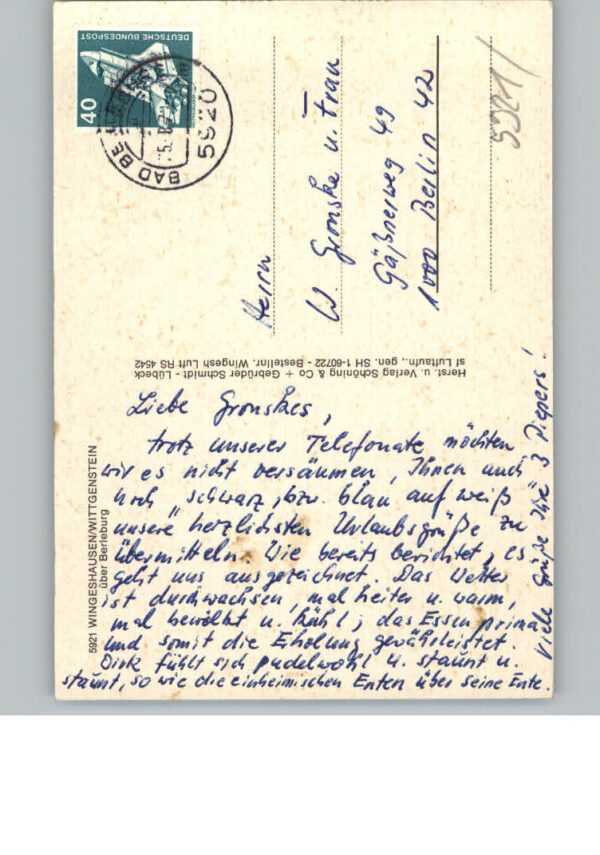 DEUTSCHE BUNDESPOST
40
BAD BE
5920
5921/
Herrn
W. Gronske u. Frau
Gäßnerweg 49
1000 Berlin 42
Herst. u. Verlag Schöning & Co + Gebrüder Schmidt - Lübeck
sf Luftaufn., gen. SH 1-60722 - Bestellnr. Wingesh Luft RS 4542
5921 WINGESHAUSEN/WITTGENSTEIN
über Berleburg
Liebe Gronskes,
trotz unserer Telefonate möchten
wir es nicht versäumen, Ihnen auch
noch "schwarz, bzw. blau auf weiß"
unsere herzlichsten Urlaubsgrüße zu
übermitteln. Wie bereits berichtet, es
geht uns ausgezeichnet. Das Wetter
ist durchwachsen, mal heiter u. warm,
mal bewölkt u. kühl; das Essen prima
und somit die Erholung gewährleistet.
Dirk fühlt sich pudelwohl u. staunt u.
staunt, so wie die einheimischen Enten über seine Ente.
Viele Grüße Ihre 3 Piepers!